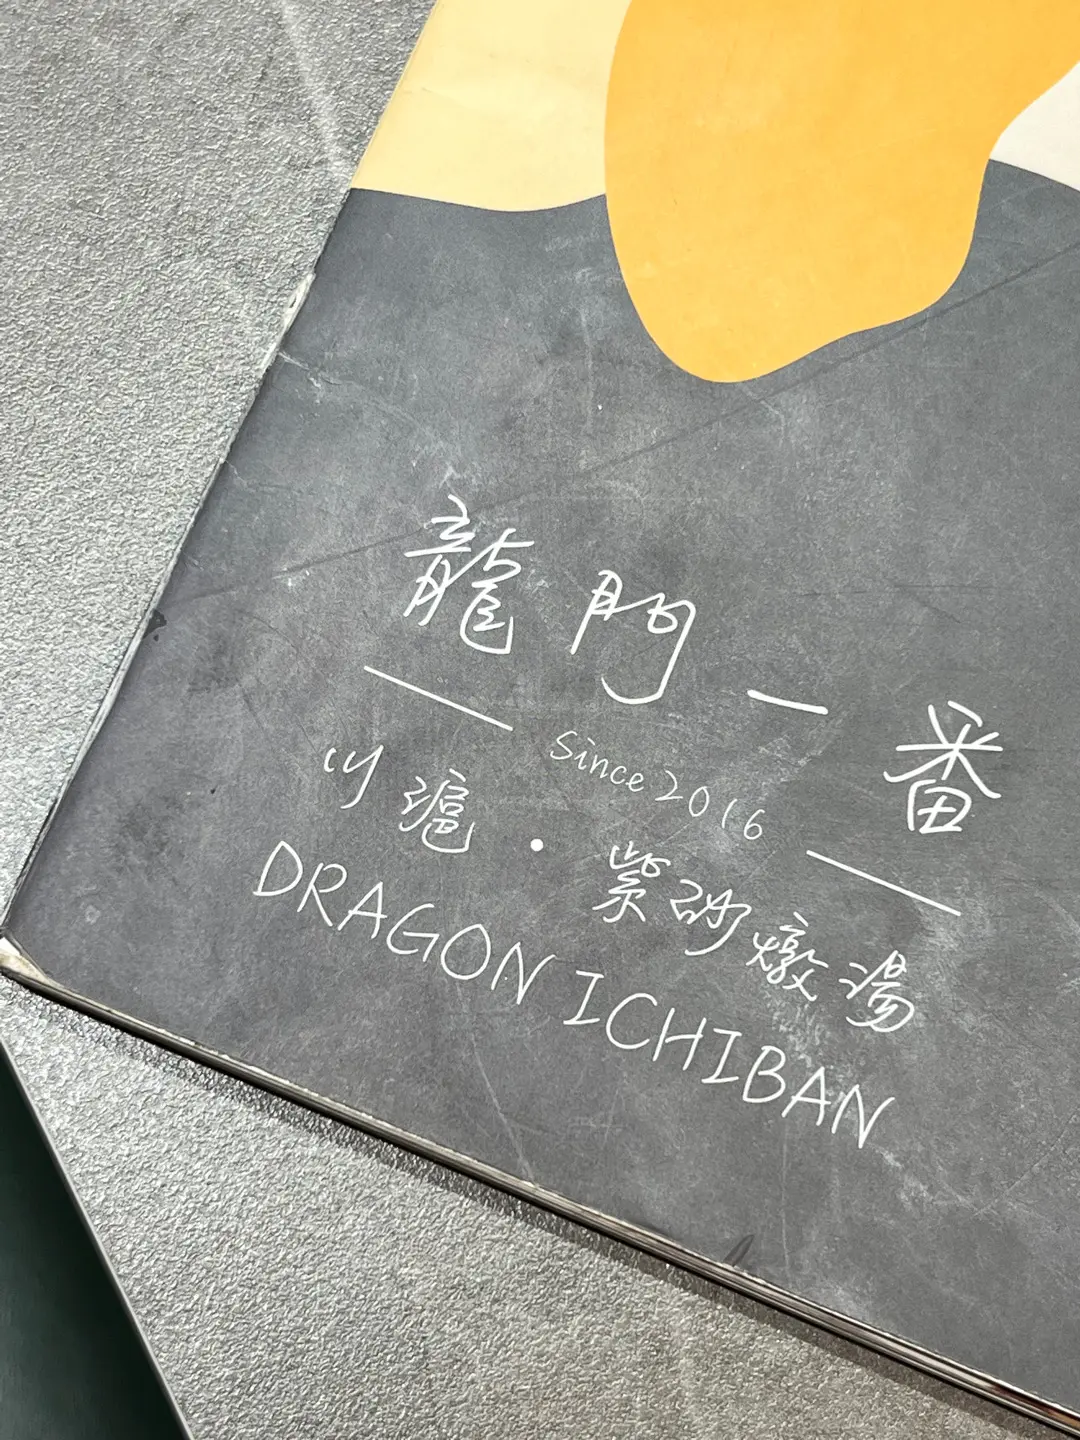 龍門一番
since 2016
川滬·紫砂燉湯
DRAGON ICHIBAN